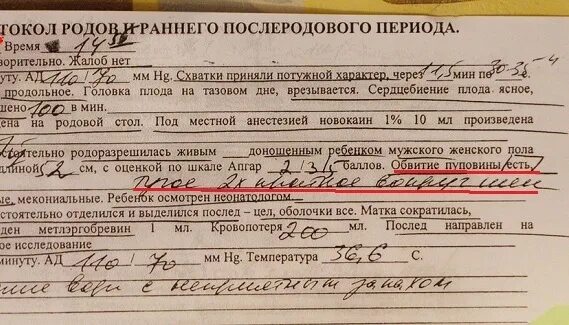 ТОКОЛ РОДОВ И РАННЕГО ПОСЛЕРОДОВОГО ПЕРИОДА.
Время 14 50
ворительно. Жалоб нет
нуту. АД 110 / 70 мм Hg. Схватки приняли потужной характер, через 1,5 мин по 30-35-4
продольное. Головка плода на тазовом дне, врезывается. Сердцебиение плода ясное,
шено 100 в мин.
дена на родовой стол. Под местной анестезией новокаин 1% 10 мл произведена
стоятельно родоразрешилась живым доношенным ребенком мужского женского пола
длиной 52 см, с оценкой по шкале Апгар 2/3/5 баллов. Обвитие пуповины /есть,/
тугое 2х кратное вокруг шеи
ые, мекониальные. Ребенок осмотрен неонатологом.
стоятельно отделился и выделился послед – цел, оболочки все. Матка сократилась,
ден метлэргобревин 1 мл. Кровопотеря 200 мл. Послед направлен на
ое исследование
минуту. АД 110 / 70 мм Hg. Температура 36,6 С.
воды с неприятным запахом